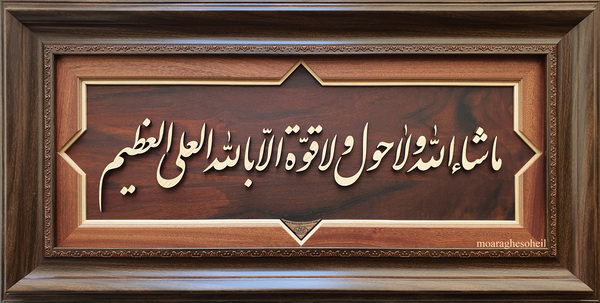 ما شاء الله ولا حول ولا قوّة الّا بالله العلی العظیم
moaraghesoheil